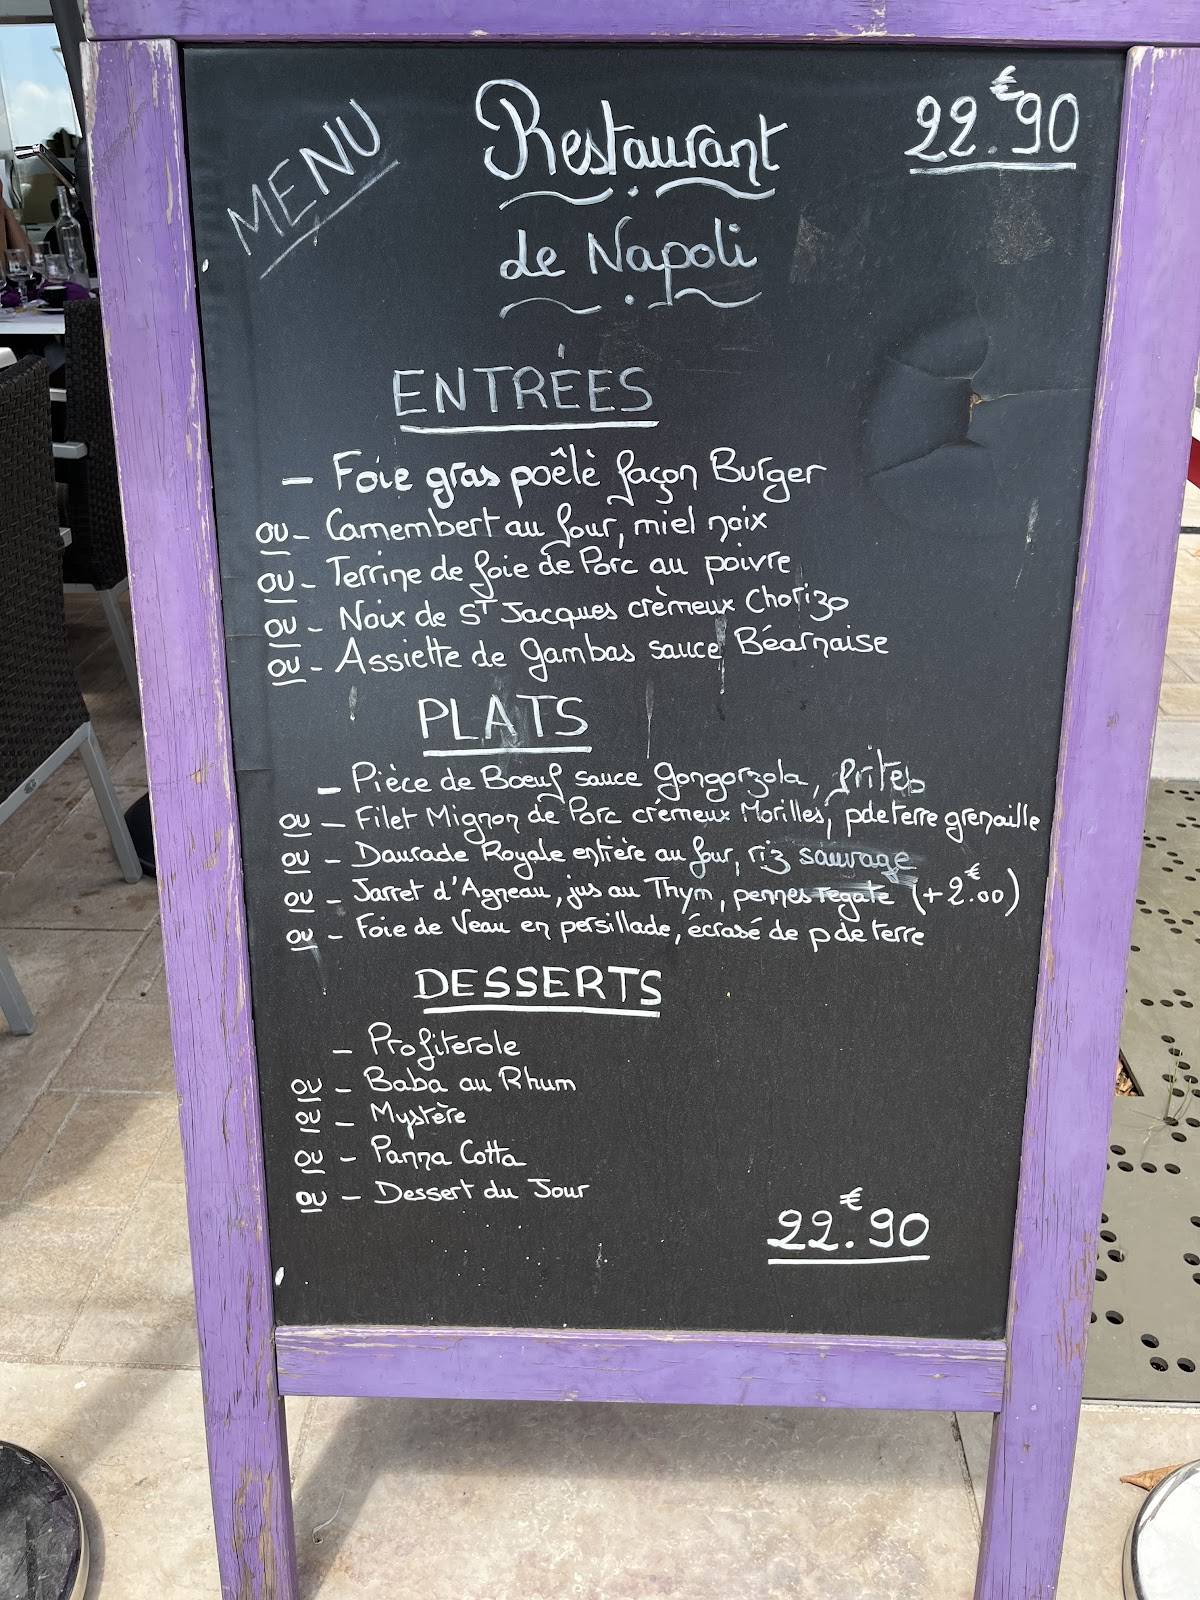 MENU
Restaurant
22.€90
de Napoli
ENTRÉES
- Foie gras poêlè façon Burger
ou - Camembert au four, miel noix
ou - Terrine de foie de Porc au poivre
ou - Noix de ST Jacques crèmeux Chorizo
ou - Assiette de gambas sauce Béarnaise
PLATS
- Pièce de Bœuf sauce gongorzola, frites
ou - Filet Mignon de Porc crémeux Morilles, p de terre grenaille
ou - Daurade Royale entière au four, riz sauvage
ou - Jarret d'Agneau, jus au Thym, pennes regate (+2.€00)
ou - Foie de Veau en persillade, écrasé de p de terre
DESSERTS
- Profiterole
ou - Baba au Rhum
ou - Mystère
ou - Panna Cotta
ou - Dessert du Jour
22.€90